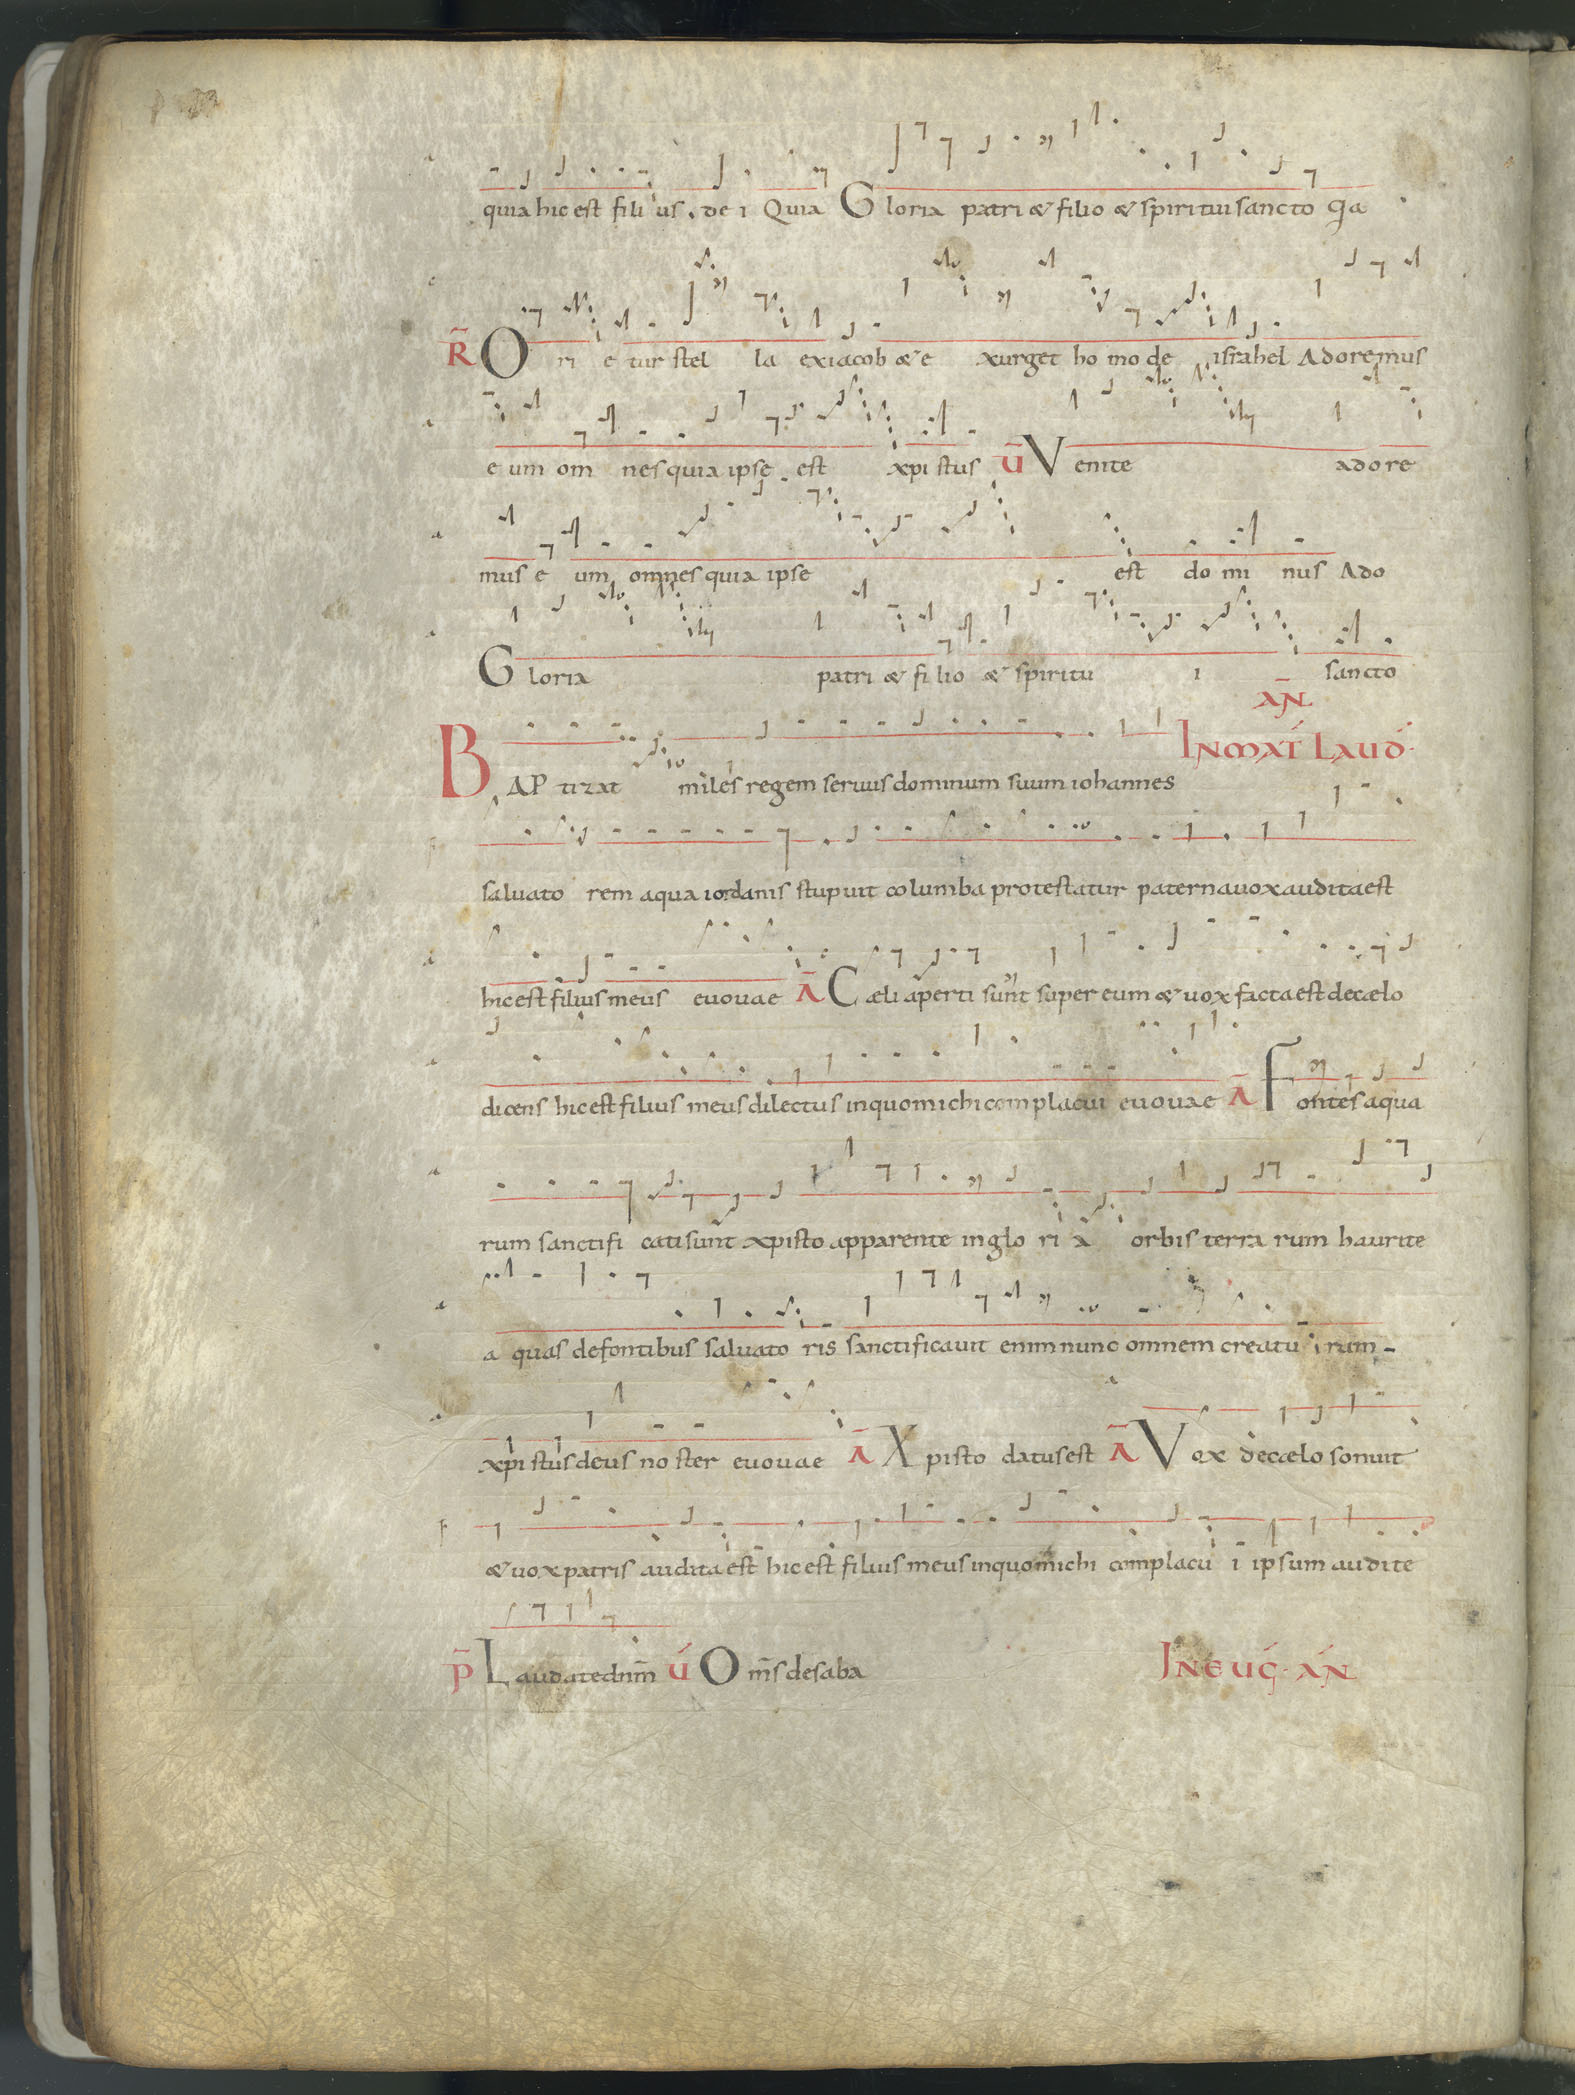 quia hic est filius. dei Quia Gloria patri & filio & spiritui sancto Qa
R̄ Orietur stella ex iacob & exurget homo de israhel Adoremus
eum omnes quia ipse est xpistus V̄ Venite adore
mus eum omnes quia ipse est dominus Ado
Gloria patri & filio & spiritui sancto
AÑ
BAPtizat miles regem servus dominum suum iohannes IN MAT LAUD
salvatorem aqua iordanis stupuit columba protestatur paterna vox audita est
hic est filius meus evovae Ā Cæli aperti sunt super eum & vox facta est de cælo
dicens hic est filius meus dilectus in quo michi complacui evovae Ā Fontes aqua
rum sanctificati sunt xpisto apparente in gloria orbis terrarum haurite
aquas de fontibus salvatoris sanctificavit enim nunc omnem creaturam
xpistus deus noster evovae Ā Xpisto datus est Ā Vox de cælo sonuit
& vox patris audita est hic est filius meus in quo michi complacui ipsum audite
P̄ Laudate dnm̄ V́ Om̄s de saba IN EUG̃. AÑ